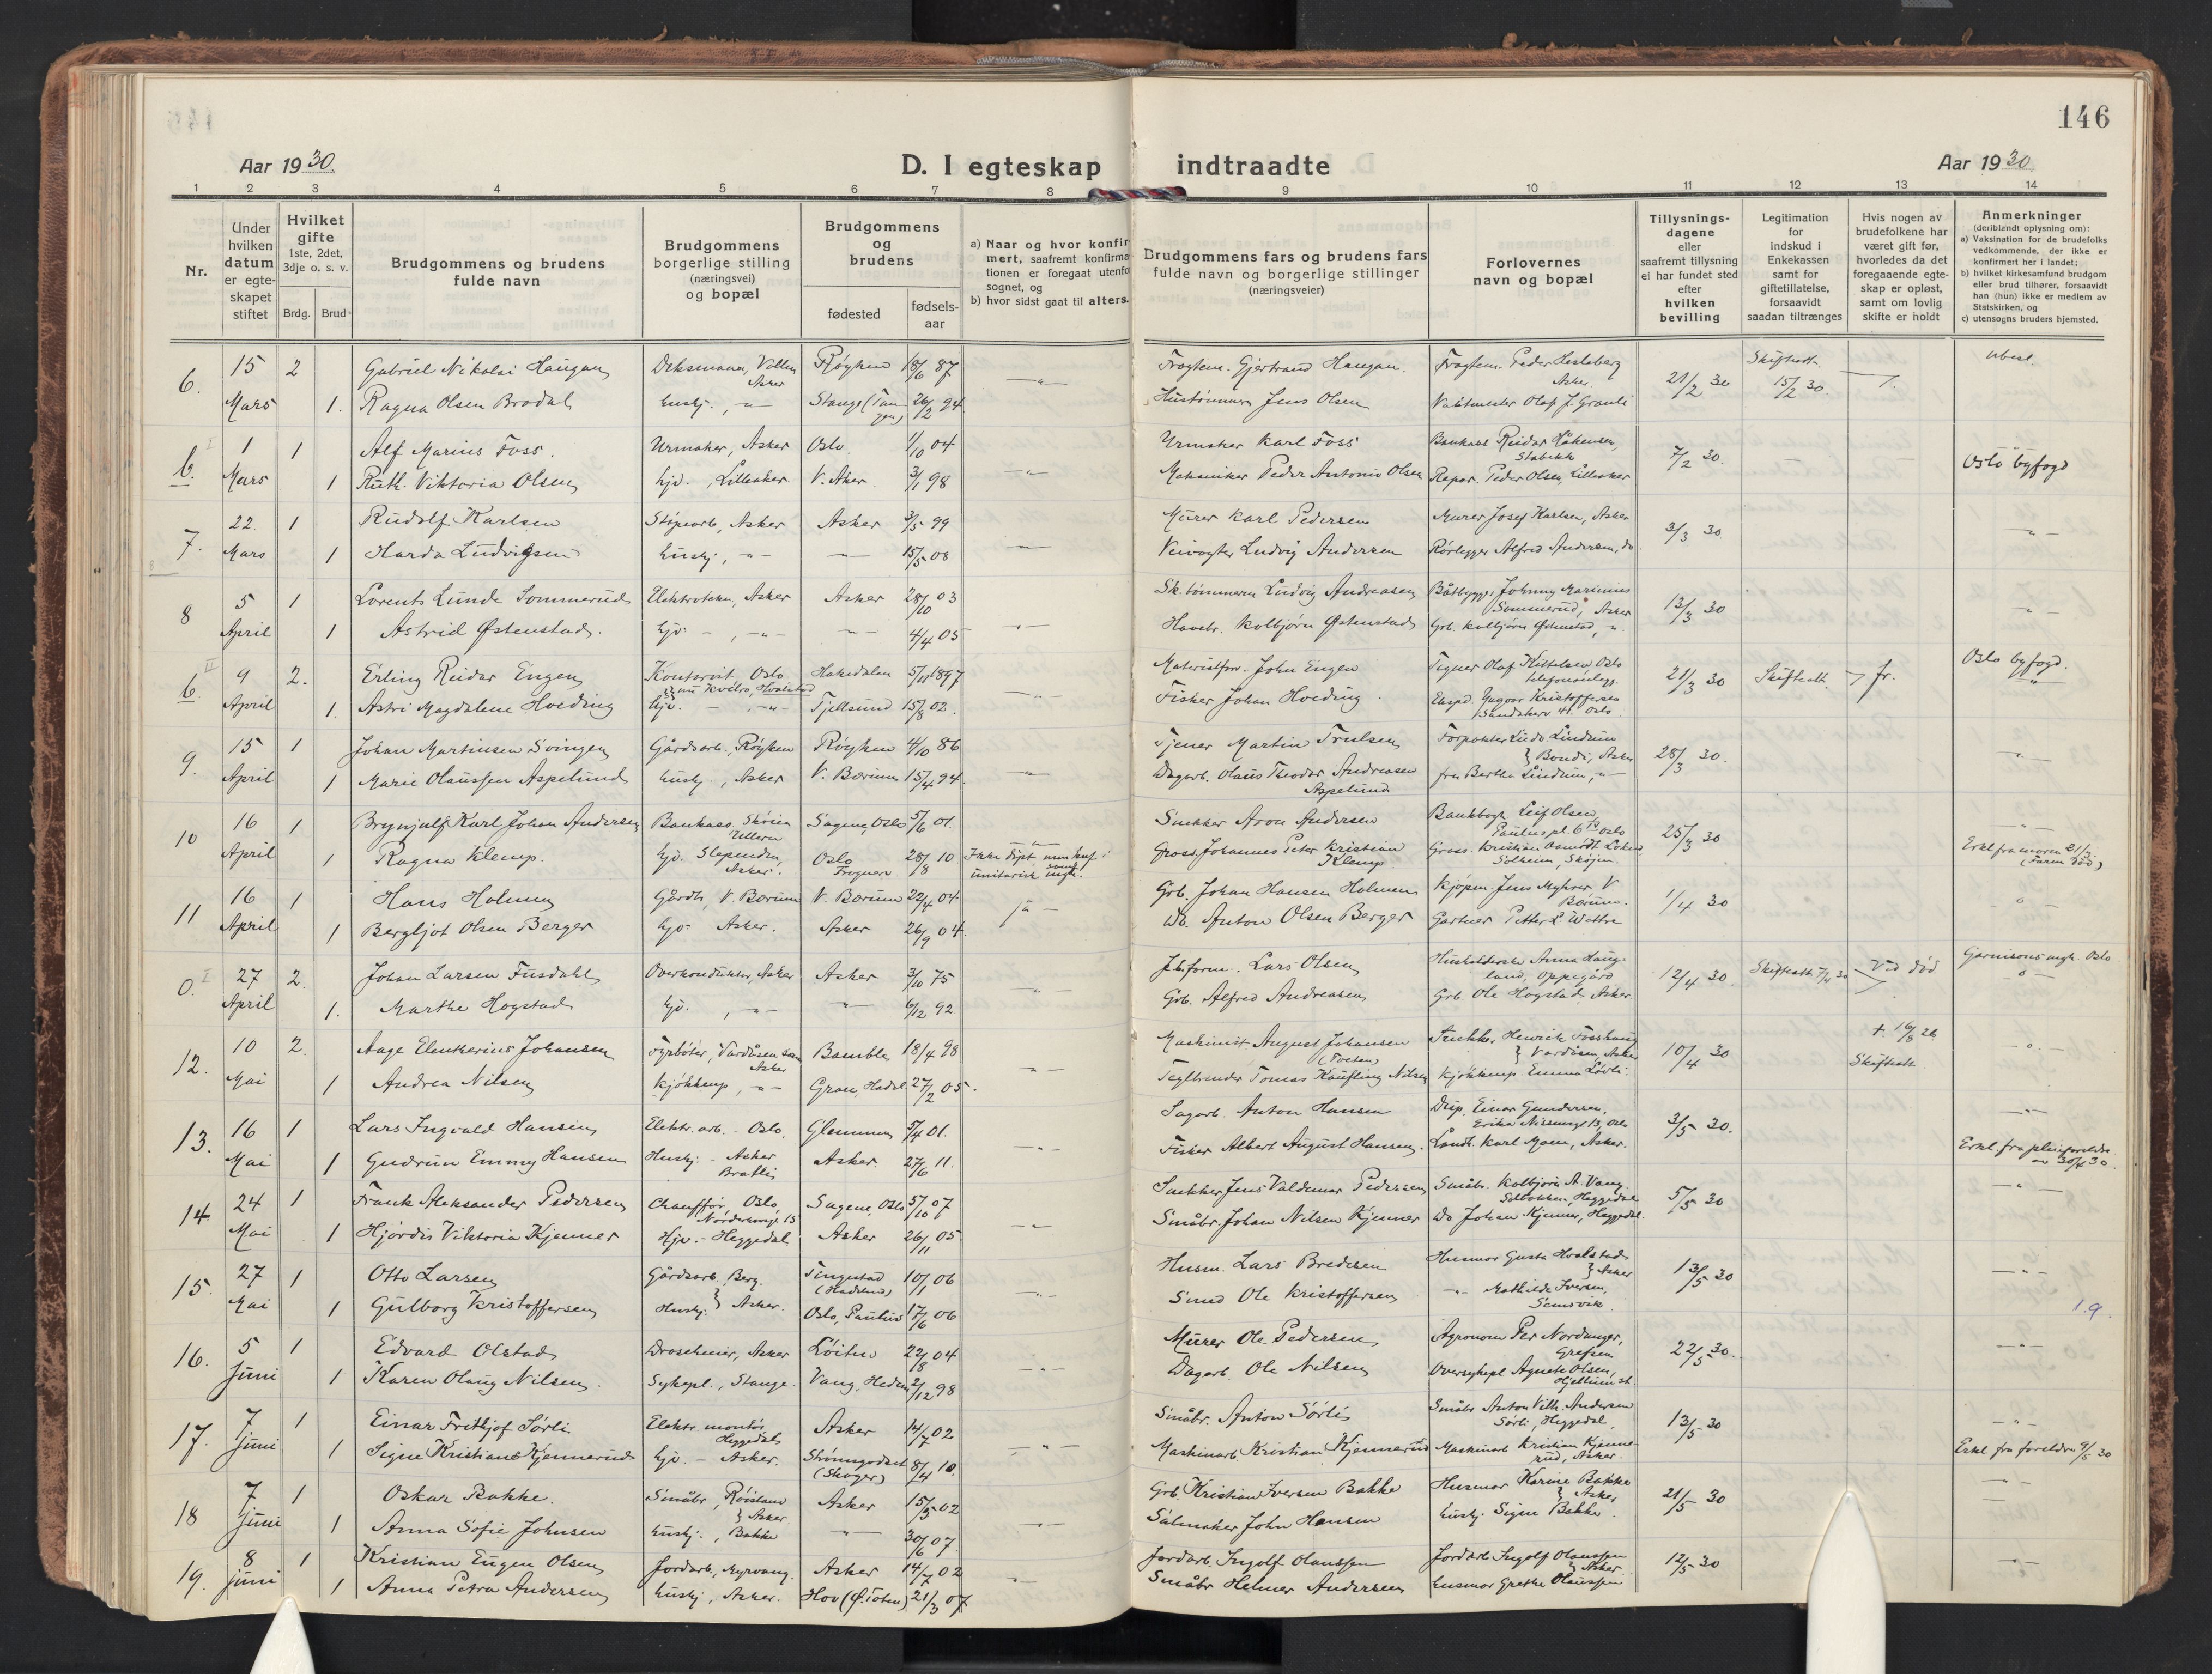 146
Aar 1930.
D. I egteskap indtraadte
Aar 1930
1 2 3 4 5 6 7 8 9 10 11 12 13 14
Nr.
Under hvilken datum er egteskapet stiftet
Hvilket gifte 1ste, 2det, 3dje o. s. v.
Brdg. Brud
Brudgommens og brudens fulde navn
Brudgommens borgerlige stilling (næringsvei) og bopæl
Brudgommens og brudens
fødested
fødsels-aar
a) Naar og hvor konfir
mert, saafremt konfirma
tionen er foregaat utenfo
sognet, og
b) hvor sidst gaat til alters.
Brudgommens fars og brudens fars
fulde navn og borgerlige stillinger
(næringsveier)
Forlovernes
navn og bopæl
Tillysnings-
dagene
eller
saafremt tillysning
ei har fundet sted
efter
hvilken
bevilling
Legitimation
for
indskud i
Enkekassen
samt for
giftetillatelse,
forsaavidt
saadan tiltrænges
Hvis nogen av
brudefolkene har
været gift før,
hvorledes da det
foregaaende egte-
skap er opløst,
samt om lovlig
skifte er holdt
Anmerkninger
(deriblendt oplysning om):
a) Vaksination for de brudefolks
vedkommende, der ikke er
konfirmert her i landet;
b) hvilket kirkesamfund brudgom
eller brud tilhører, forsaavidt
han (hun) ikke er medlem av
Statskirken, og
c) utensogns bruders hjemsted.
6. 15 2 Gabriel Nikolai Haugan Røyken 18/6 87 Fragtem. Gjertrand Haugan. Fragtem. Peder Lesleberg Asker. 21/2 30 Skifteatt. 15/2 30.
Mars 1. Ragna Olsen Brodal husbj. Stange (Tangen) 26/2 94 Jens Olsen Olaf J. Grauli
6. I 1 1 Alf Marius Foss. Urmaker, Asker Oslo. 1/10 04 Urmaker Karl Foss Reidar Håkensen, Stabekk 7/2 30. Oslo byfogd
Mars 1 Ruth Viktoria Olsen hjv., Lilleaker V. Aker 3/1 98 Mekaniker Peder Antonio Olsen Repar. Peder Olsen, Lilleaker
7. 22. 1 Rudolf Karlsen Støpearb, Asker Asker 3/5 99 Murer Karl Pedersen Murer Josef Karlsen, Asker 3/3 30
Mars 1 Harda Ludvigsen husbj, -"- -"- 15/5 08 Veivogter Ludvig Andersen Rørlegger Alfred Andersen, do
8 5 1 Lorents Lunde Sommerud Elektrotekn, Asker Asker 28/10 03 Sk.tømmerm Ludvig Andreasen Båtbygg. Johnny Marinius Sommerud, Asker 13/3 30
April 1 Astrid Østenstad. hjv. -"- -"- 4/4 05 Havebr. Kolbjørn Østenstad Grb. Kolbjørn Østenstad, -"-
6. II 9 2. Erling Reidar Engen Kontorvit. Oslo Hakedalen 5/10 1897 Materialforv. John Engen Tegner Olaf Kittelsen Oslo 21/3 30 Skifteatt. Oslo byfogd.
April 1. Astri Magdalene Hveding hjv. -"- Tjellsund 15/8 02. Fisker Johan Hveding Yngvar Kristoffersen Oslo
9. 15 1 Johan Martinsen Svingen Gårdsarb., Røyken Røyken 4/10 86 Tjener Martin Trulsen Forpakter Lindum Bondi, Asker 28/3 30.
April 1 Marie Olaussen Aspelund husbj., Asker V. Bærum 15/4 94. Dagarb. Olaus Theodor Andreasen Aspelund fru Bertha Lindum, -"-
10 16 1 Brynjulf Karl Johan Andersen Bankass. Skøien Ullern Sagene, Oslo 5/6 01. Snekker Aron Andersen Bankbogh. Leif Olsen, Paulus pl. 6 Oslo 25/3 30
April 1 Ragna Klemp. hjv. Slependen, Asker. Oslo Frogner 28/8 10 Ikke døpt men konf i unitarisk mgh. Gross. Johannes Peter Kristian Klemp Gross. Kristian Solheim, Skøjen. Erkl. fra moren 21/3 (Faren død)
11 16 1 Hans Holmen Gårdb, V. Bærum V. Bærum 22/4 04 ja - Grb. Johan Hansen Holmen Kjøpm. Jens Myhrer V. Bærum. 1/4 30
April 1 Bergljot Olsen Berger hjv. Asker. Asker 26/9 04. Do. Anton Olsen Berger Gartner Petter L. Wettre
0. I 27 2. Johan Larsen Fusdahl Overkonduktør, Asker Asker 3/10 75 Lars Olsen Husholderske Anna Haugland, Oppegård 12/4 30. Skifteatt 7/4 30 Ved død Garnisonsmgh. Oslo
April 1. Marthe Hogstad hjv. , -"- -"- 6/12 92 Grb. Alfred Andreasen Grb Ole Hogstad Asker.
12. 10 2. Aage Eleutherius Johansen Fyrbøter, Vardåsen san Asker Bamble 18/4 98 Maskinist August Johansen Henrik Fosshaug Vardåsen, Asker 10/4 30 + 16/8 26
Mai 1 Andrea Nilsen Kjøkkenp, -"- Gran, Hadel 27/2 05. Teglbrender Tomas Nilsen Kjøkkenp. Emma Løvli. Skifteatt.
13. 16 1 Lars Ingvald Hansen Elektr. arb. - Oslo. Glemmen 5/4 01. Sagarb. Anton Hansen Disp. Einar Gundersen, Oslo 3/5 30.
Mai 1 Gudrun Emmy Hansen Husbj. - Asker Bratli Asker. 27/6 11. Fisker Albert August Hansen. Landh. Karl Moen, Asker. Erkl. fra pleieforeldre 30/4 30.
14. 24 1 Frank Aleksander Pedersen Chauffør, Oslo, Sagene, Oslo 5/10 07 Snekker Jens Valdemar Pedersen Småbr. Kolbjørn A. Vang. Solbakken, Heggedal 5/5 30
Mai 1 Hjørdis Viktoria Kjenner Hjv. - Heggedal Asker 26/11 05 Småbr. Johan Nilsen Kjenner Do Johan Kjenner, Heggedal.
15. 27 1 Otto Larsen Gårdsarb. Berg. 10/1 06 Husm. Lars Bredesen Husmor Gusta Hvalstad Asker 13/5 30
Mai 1 Gulborg Kristoffersen Husbj. Asker. Oslo, Paulus 17/6 06 Smed Ole Kristoffersen -"- Mathilde Iversen, Semsvik. 1.9.
16. 5 1 Edvard Olstad Droscheeier, Asker Løiten 22/8 04 Murer Ole Pedersen Agronom Per Nordanger, Grefsen 22/5 30.
Juni 1 Karen Olaug Nilsen. Sykepl., Stange. Vang, Hedm 2/12 98 Dagarb. Ole Nilsen Oversykepl Agnete Olsen,
17. 7 1 Einar Fritjof Sørli Elektr. montør Heggedal Asker 14/7 02 Småbr. Anton Sørli Småbr Anton Vilh. Andersen Sørli, Heggedal, 13/5 30
Juni 1 Signe Kristiane Kjennerud hjv. - Asker. Strømsgodset (Skoger) 8/4 10. Maskinarb. Kristian Kjennerud Maskinarb Kristian Kjennerud, Asker. Erkl fra foreldre 9/5 30
18 7 1 Oskar Bakke. Småbr, Røisland Asker Asker 15/3 02 Grb. Kristian Iversen Bakke Husmor Karine Bakke Asker 21/5 30
Juni 1 Anna Sofie Johnsen husbj., Bakke -"- 30/6 07. Salmaker John Hansen husbj. Signe Bakke.
19. 8 1 Kristian Eugen Olsen Jordarb, Myrvang. Asker 14/7 02 Jordarb. Ingolf Olaussen Jordarb Ingolf Olaussen Asker 12/5 30
Juni 1 Anna Petra Andersen husbj, Asker. Hov (Ø. Toten) 21/3 07 Småbr Helmer Andersen husmor Grethe Olaussen